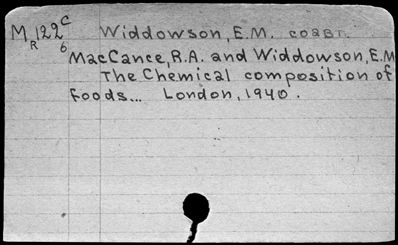 M R 122 c 6 Widdowson, E.M. соавт.
MacCance, R.A. and Widdowson, E.M
The Chemical composition of
foods... London, 1940.